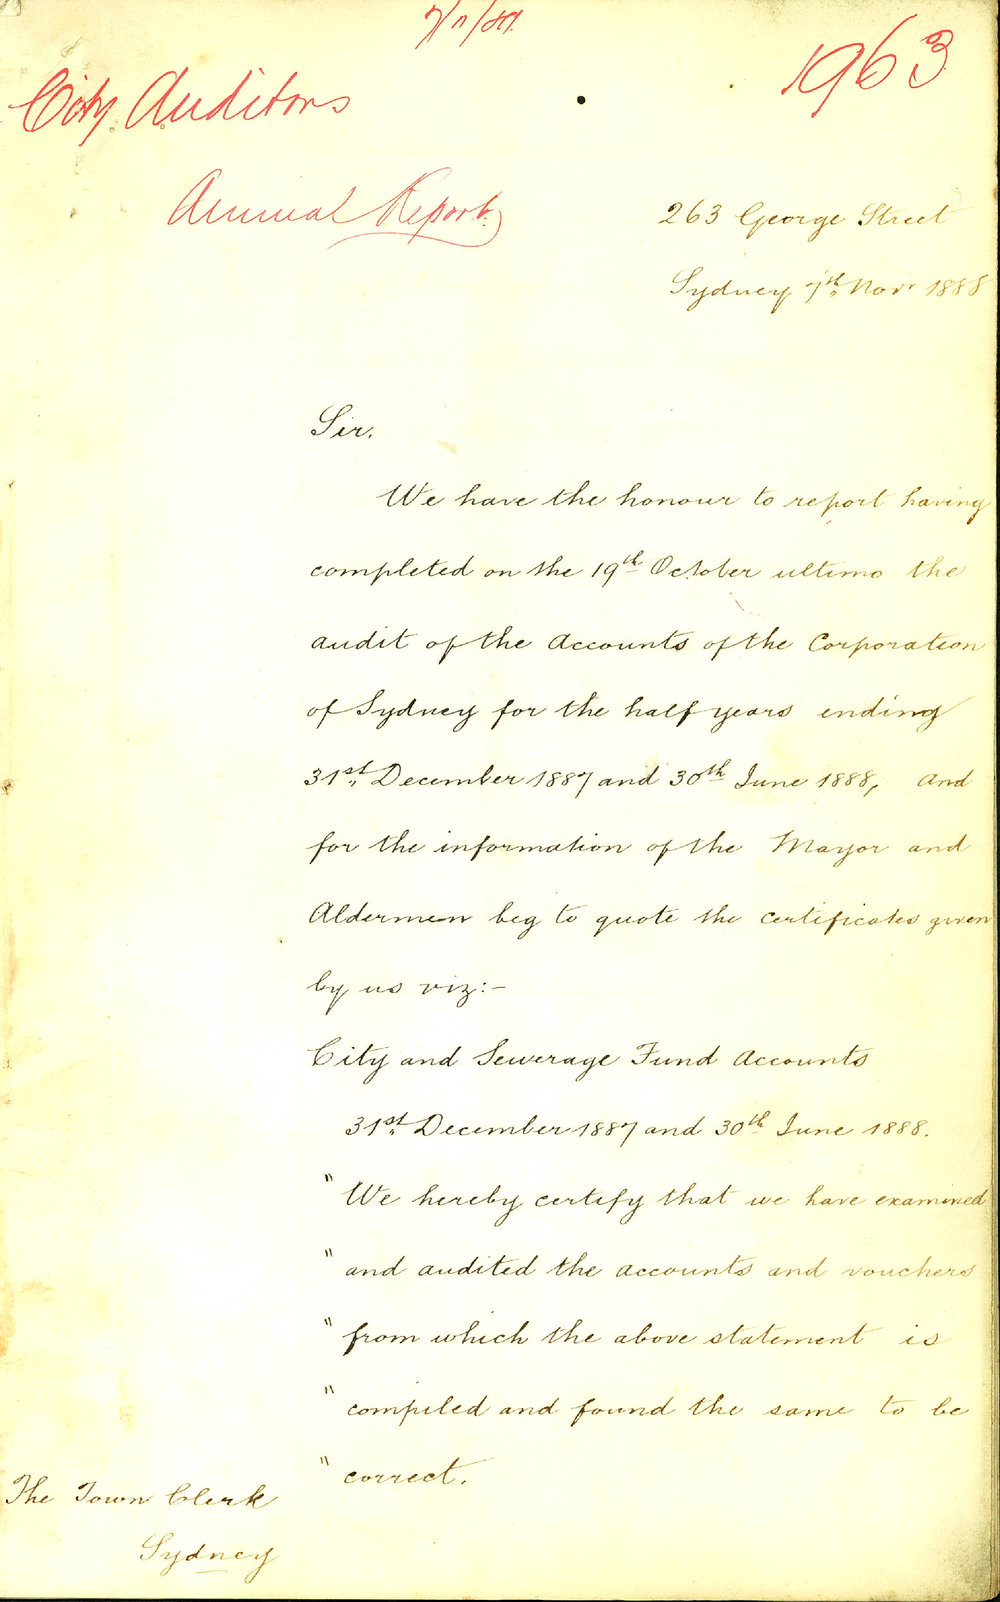 7/11/88
1963
City Auditors
Annual Report.
263 George Street
Sydney 7th Novr 1888
Sir,
We have the honour to report having
completed on the 19th October ultimo the
audit of the Accounts of the Corporation
of Sydney for the half years ending
31st December 1887 and 30th June 1888, and
for the information of the Mayor and
Aldermen beg to quote the certificates given
by us viz:-
City and Sewerage Fund Accounts
31st December 1887 and 30th June 1888.
" We hereby certify that we have examined
" and audited the accounts and vouchers
" from which the above statement is
" compiled and found the same to be
" correct.
The Town Clerk
Sydney